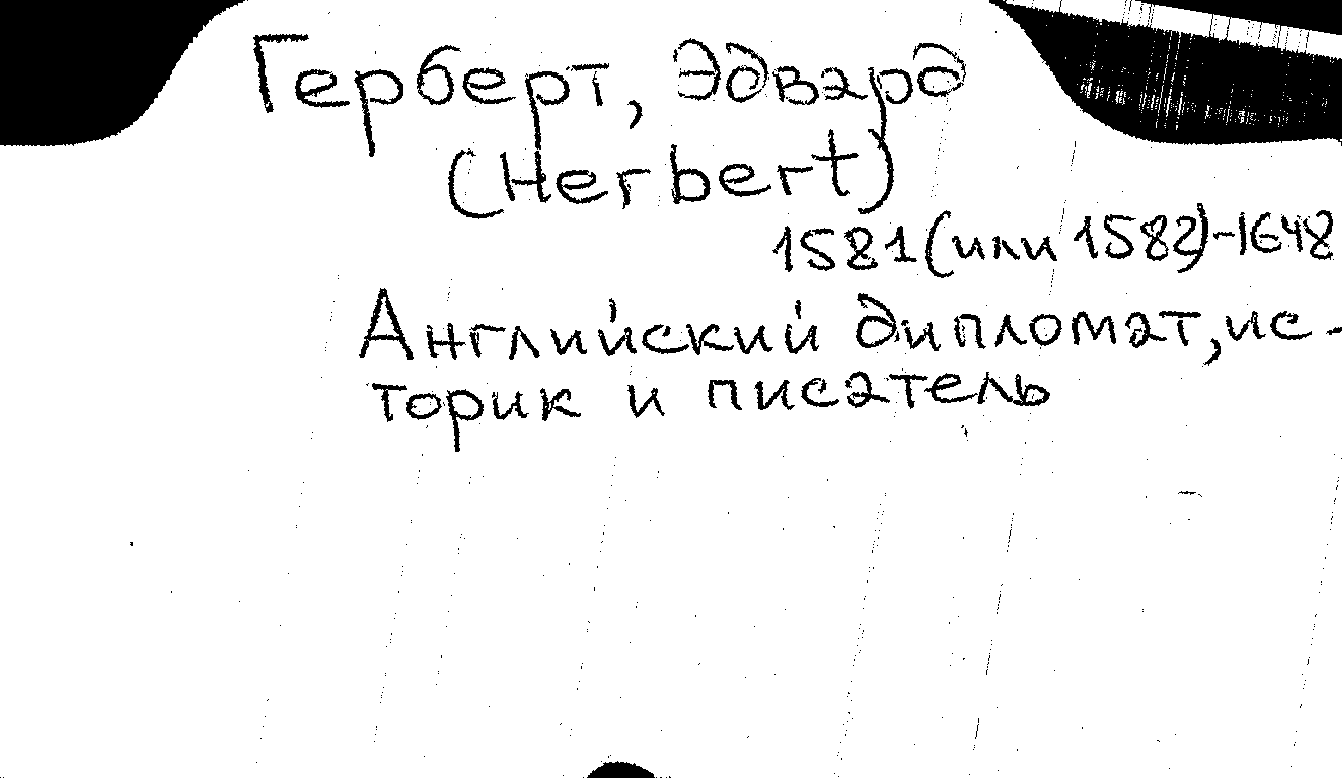 Герберт, Эдвард
(Herbert)
1581 (или 1582)-1648
Английский дипломат, ис-
торик и писатель